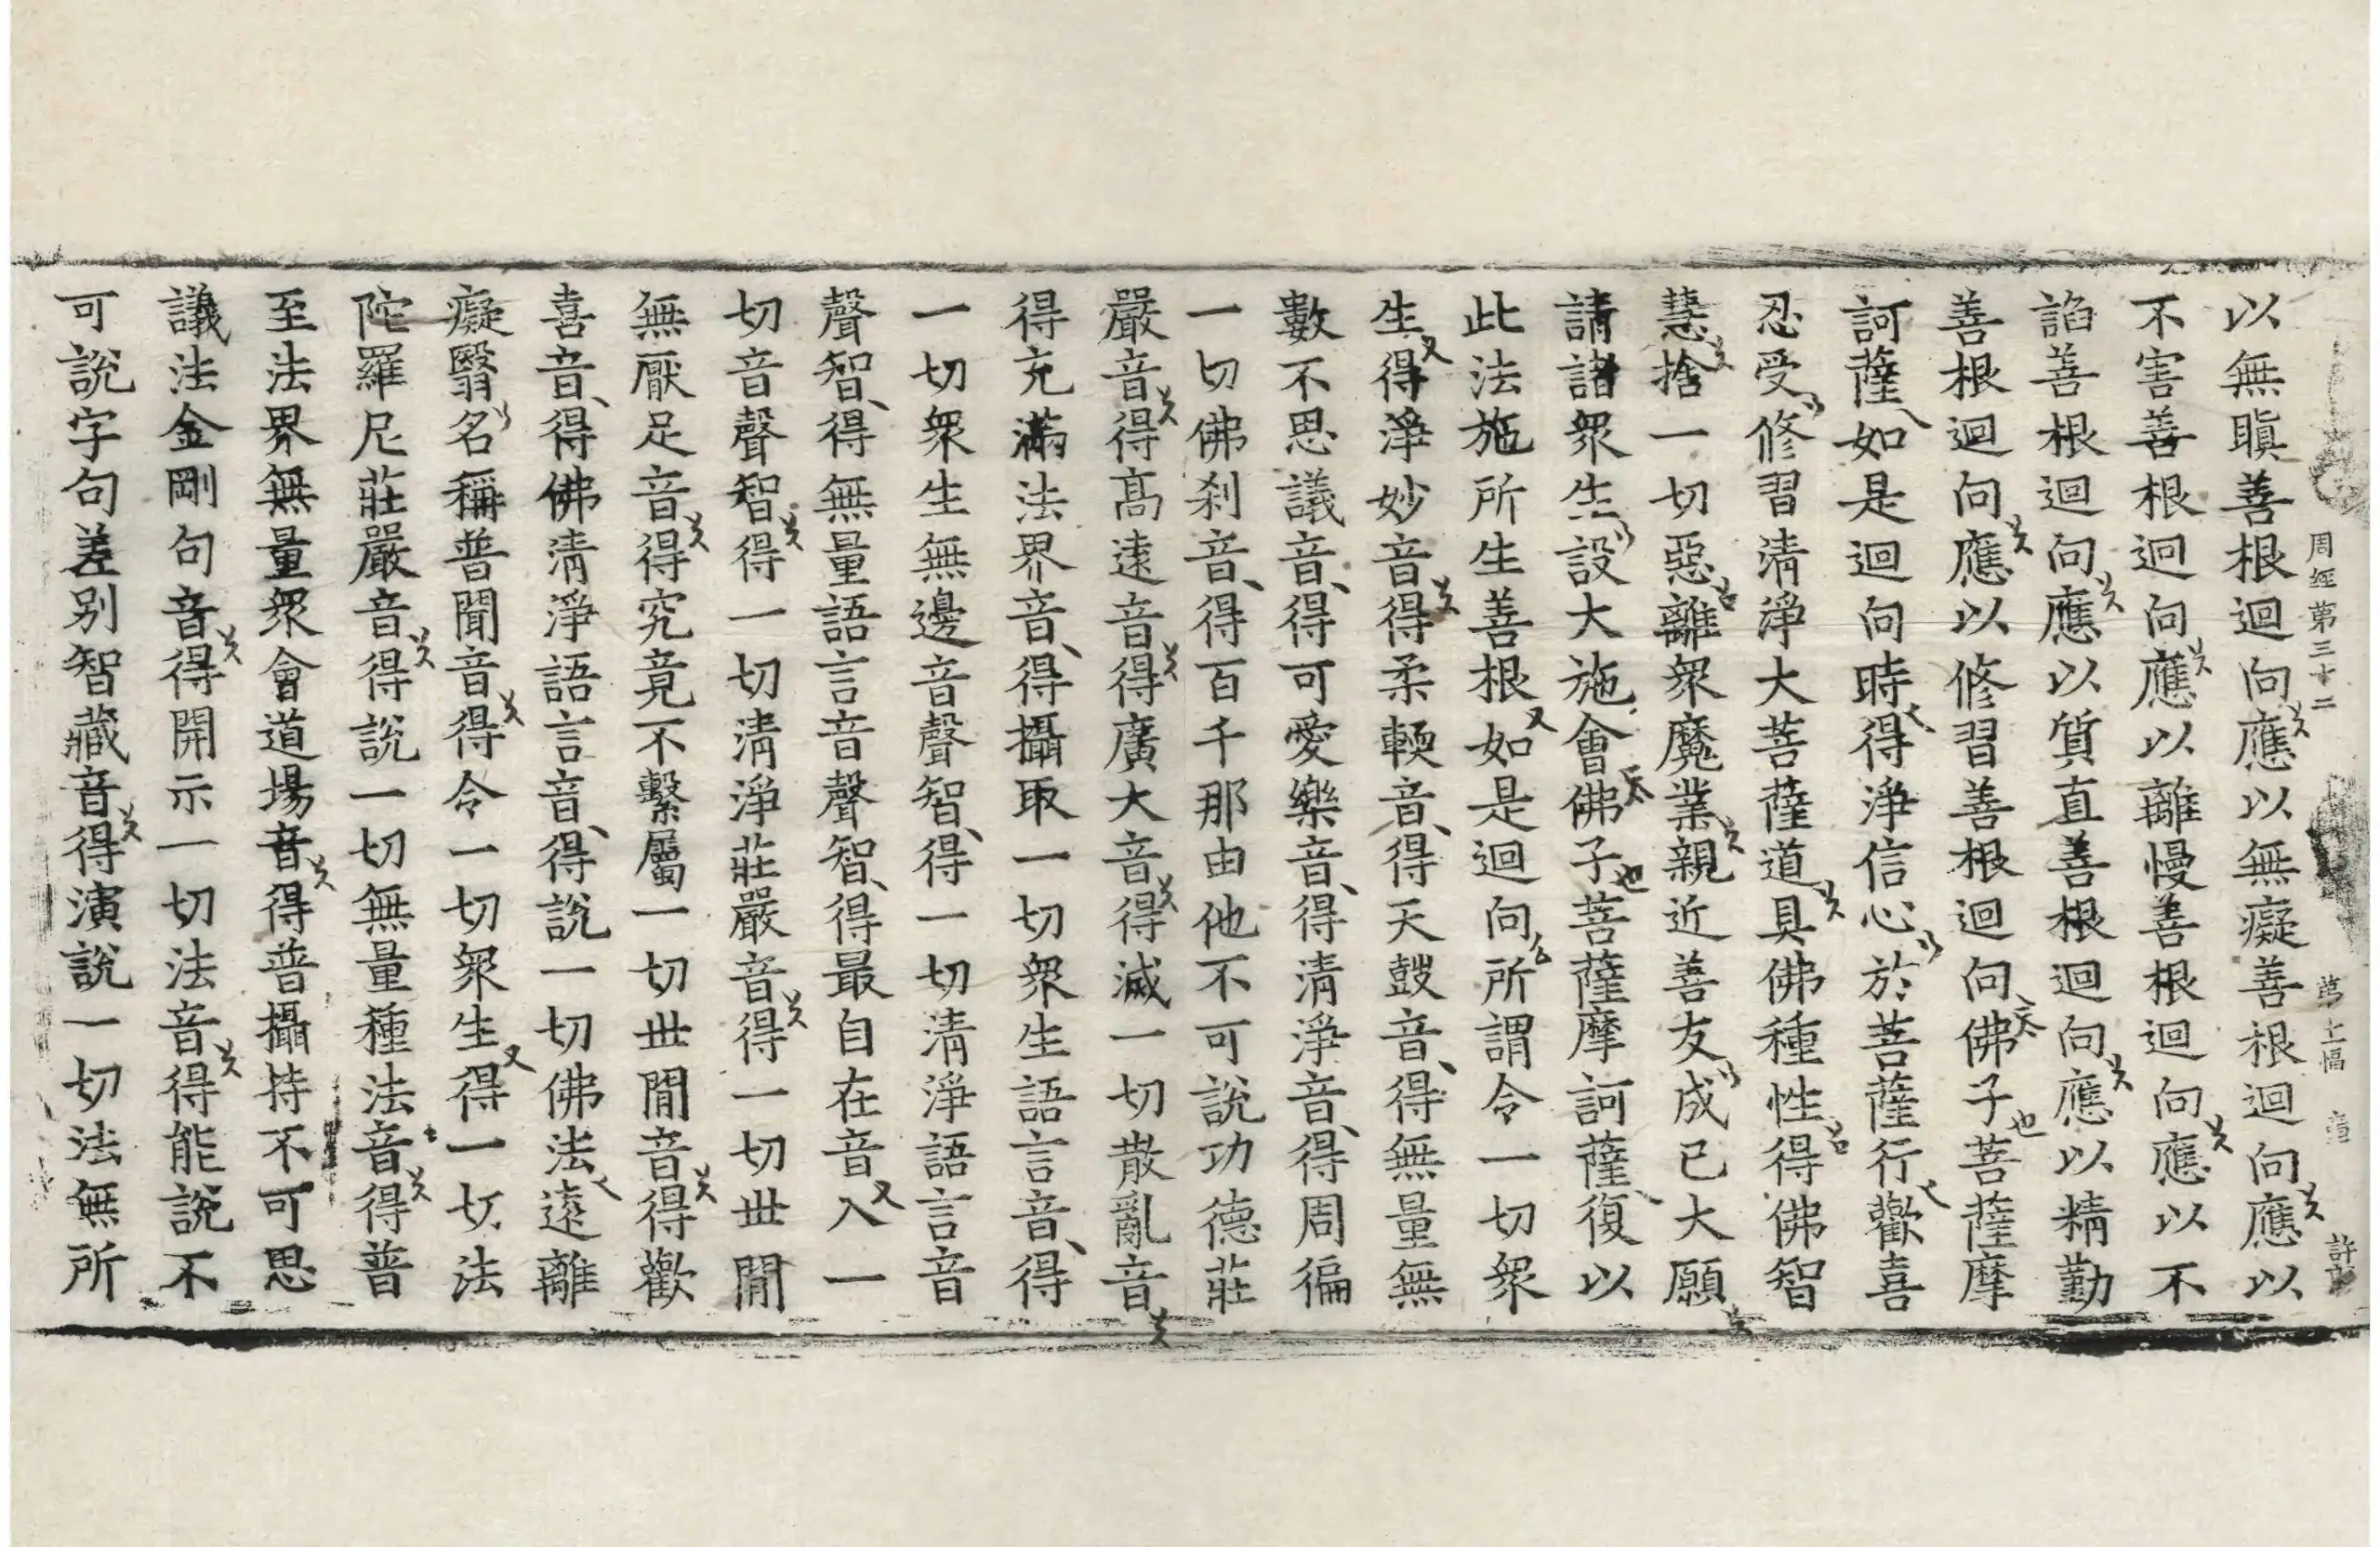 周經第三十二
以無瞋善根迴向應以無癡善根迴向應以
不害善根迴向應以離慢善根迴向應以不
諂善根迴向應以質直善根迴向應以精勤
善根迴向應以修習善根迴向佛子菩薩摩
訶薩如是迴向時得淨信心於菩薩行歡喜
忍受修習清淨大菩薩道具佛種性得佛智
慧捨一切惡離眾魔業親近善友成已大願
請諸眾生設大施會佛子菩薩摩訶薩復以
此法施所生善根如是迴向所謂令一切眾
生得淨妙音得柔輭音得天鼓音得無量無
數不思議音得可愛樂音得清淨音得周徧
一切佛刹音得百千那由他不可說功德莊
嚴音得高遠音得廣大音得滅一切散亂音
得充滿法界音得攝取一切眾生語言音得
一切眾生無邊音聲智得一切清淨語言音
聲智得無量語言音聲智得最自在音入一
切音聲智得一切清淨莊嚴音得一切世間
無厭足音得究竟不繫屬一切世間音得歡
喜音得佛清淨語言音得說一切佛法遠離
癡翳名稱普聞音得令一切眾生得一切法
陀羅尼莊嚴音得說一切無量種法音得普
至法界無量眾會道場音得普攝持不可思
議法金剛句音得開示一切法音得能說不
可說字句差別智藏音得演說一切法無所